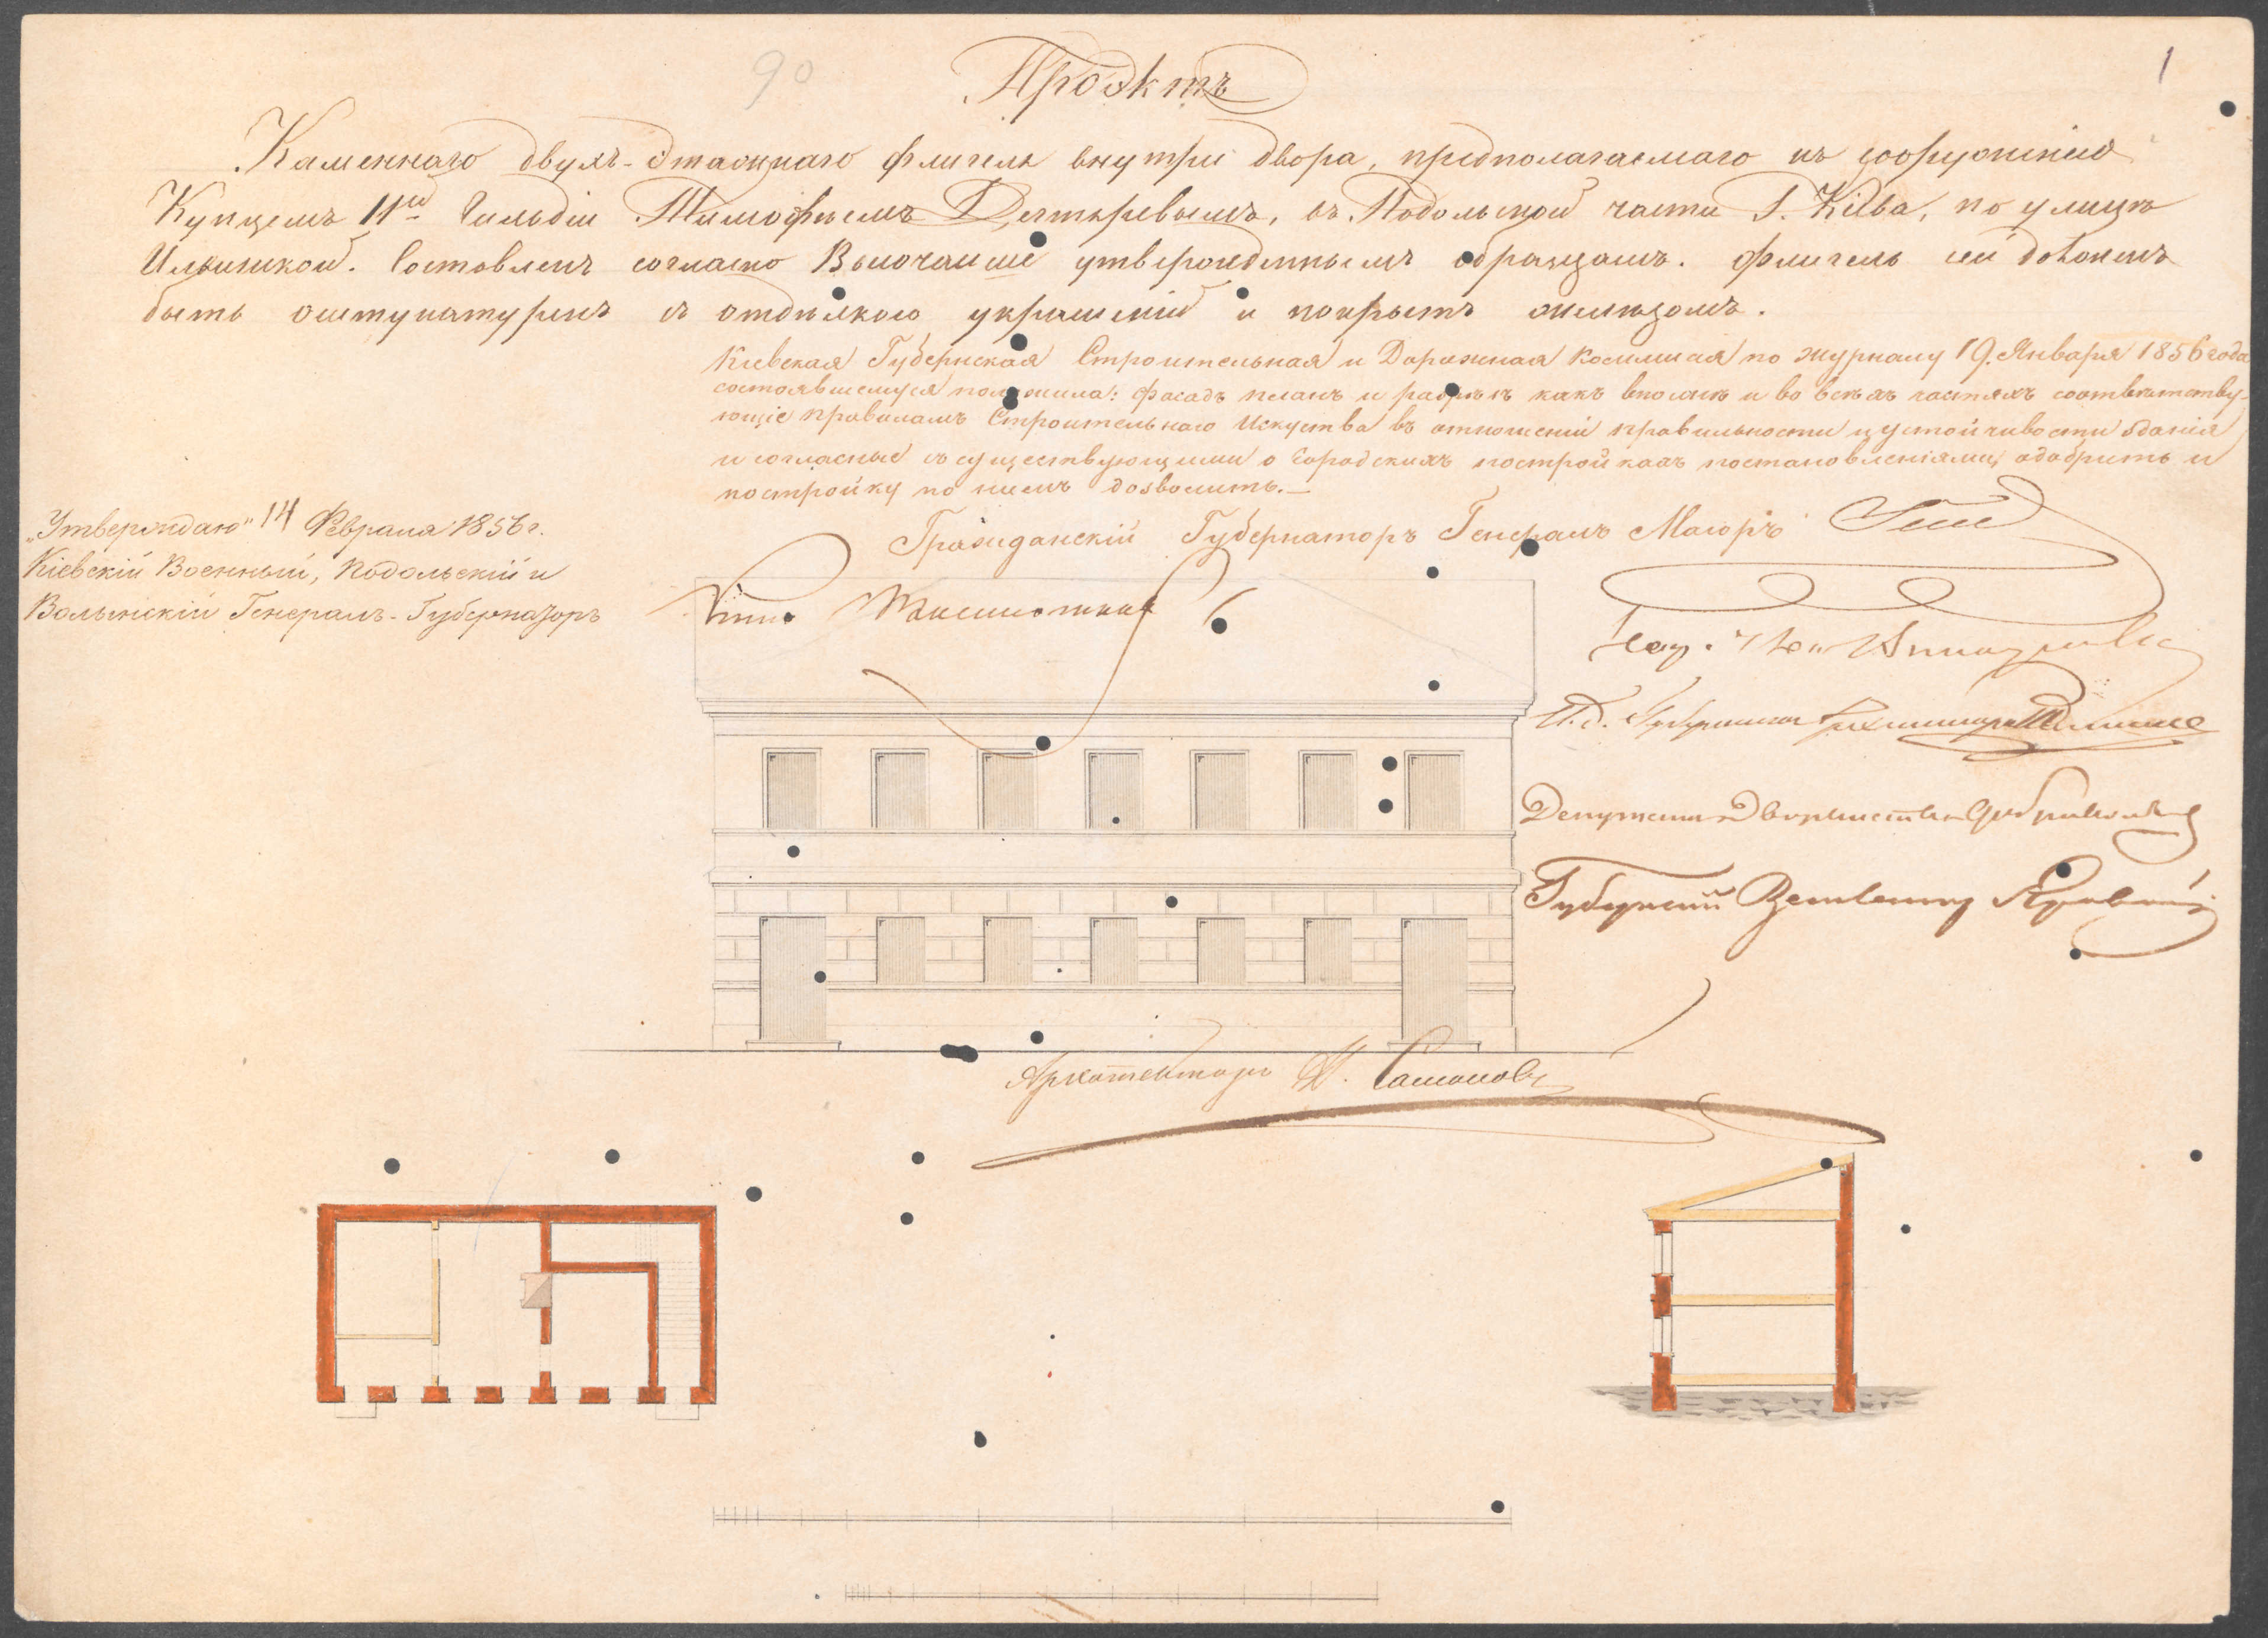 90
1
Проэктъ
Каменнаго двухъ-этажнаго флигеля внутри двора, предполагаемаго къ сооруженію
Купцемъ IIой Гильдіи Тимофѣемъ Дегтяревымъ, въ Подольской части Г. Кіева, по улицѣ
Ильинской. Составленъ согласно Высочайше утвержденнымъ образцамъ. Флигель сей долженъ
быть оштукатуренъ съ отдѣлкою украшеній и покрытъ желѣзомъ.
Кіевская Губернская Строительная и Дорожная Коммисія по журналу 19. Января 1856 года
состоявшемуся положила: фасадъ планъ и разрѣзъ какъ вполнѣ и во всѣхъ частяхъ соотвѣтству-
ющіе правиламъ Строительнаго Искуства въ отношеніи правильности и устойчивости зданія
и согласные съ существующими о городскихъ постройкахъ постановленіями, одобрить и
постройку по нимъ дозволить.—
„Утверждаю" 14 Февраля 1856 г.
Кіевскій Военный, Подольскій и
Волынскій Генералъ-Губернаторъ
Гражданскій Губернаторъ Генералъ Маіоръ
И.д. Губернскаго
Депутатъ Дворянства
Губернскій Землемѣръ
Архитекторъ